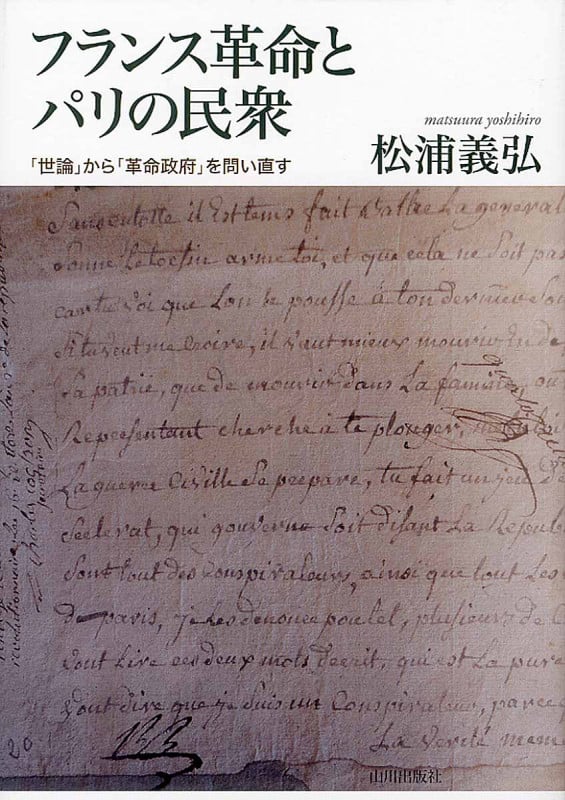 フランス革命と
パリの民衆
「世論」から「革命政府」を問い直す
matsuura yoshihiro
松浦義弘
Sansculotte il Est tems fait Battre La general
Sonne Le tocsin arme toi, et que cela ne Soit pas
car tu voi que Lon te pousse à ton dernier Sou
Si tu veut me Croire, il vaut mieux mourir En de
Sa patrie, que de mourir dans La famine, ou
Representant cherche à te plonger,
La guerre Civille Se prepare, tu fait un jeu de
Seelerat, qui gouverne Soit disant La Repub
Sont tout des Conspirateurs, ainsi que tout Les
De paris, je Les denonce
Vont Lire ces deux mots d'ecrit, qui est La pure
Vont dire que je Suis un Conspirateur, parceq
La Verité meme
20
山川出版社